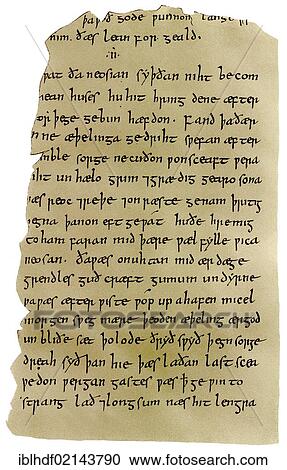 gode ƿunnon lange
him ðæs lean forgeald.
.ii.
ƿat ða neosian syþðan niht becom
hean huses hu hit hring dene æfter
þege gebun hæfdon. Fand þa ðær
inne æþelinga gedriht sƿefan æfter
symble sorge ne cuðon ƿonsceaft ƿera
ƿiht un hælo grim ⁊ grædig gearo sona
ƿæs reoc ⁊ reþe ⁊ on ræste genam þritig
þegna þanon eft geƿat huðe hremig
to ham faran mid þære ƿæl fylle ƿica
neosan. ða ƿæs on uhtan mid ær dæge
grendles guð cræft gumum undyrne
þa ƿæs æfter ƿiste ƿop up ahafen micel
morgen sƿeg mære þeoden æþeling ærgod
un bliðe sæt þolode ðryð sƿyð þegn sorge
dreah syðþan hie þæs laðan last scea
ƿedon ƿergan gastes ƿæs ꝥ geƿin to
strang lað ⁊ longsum næs hit lengra
FOTOSEARCH
iblhdf02143790 www.fotosearch.com